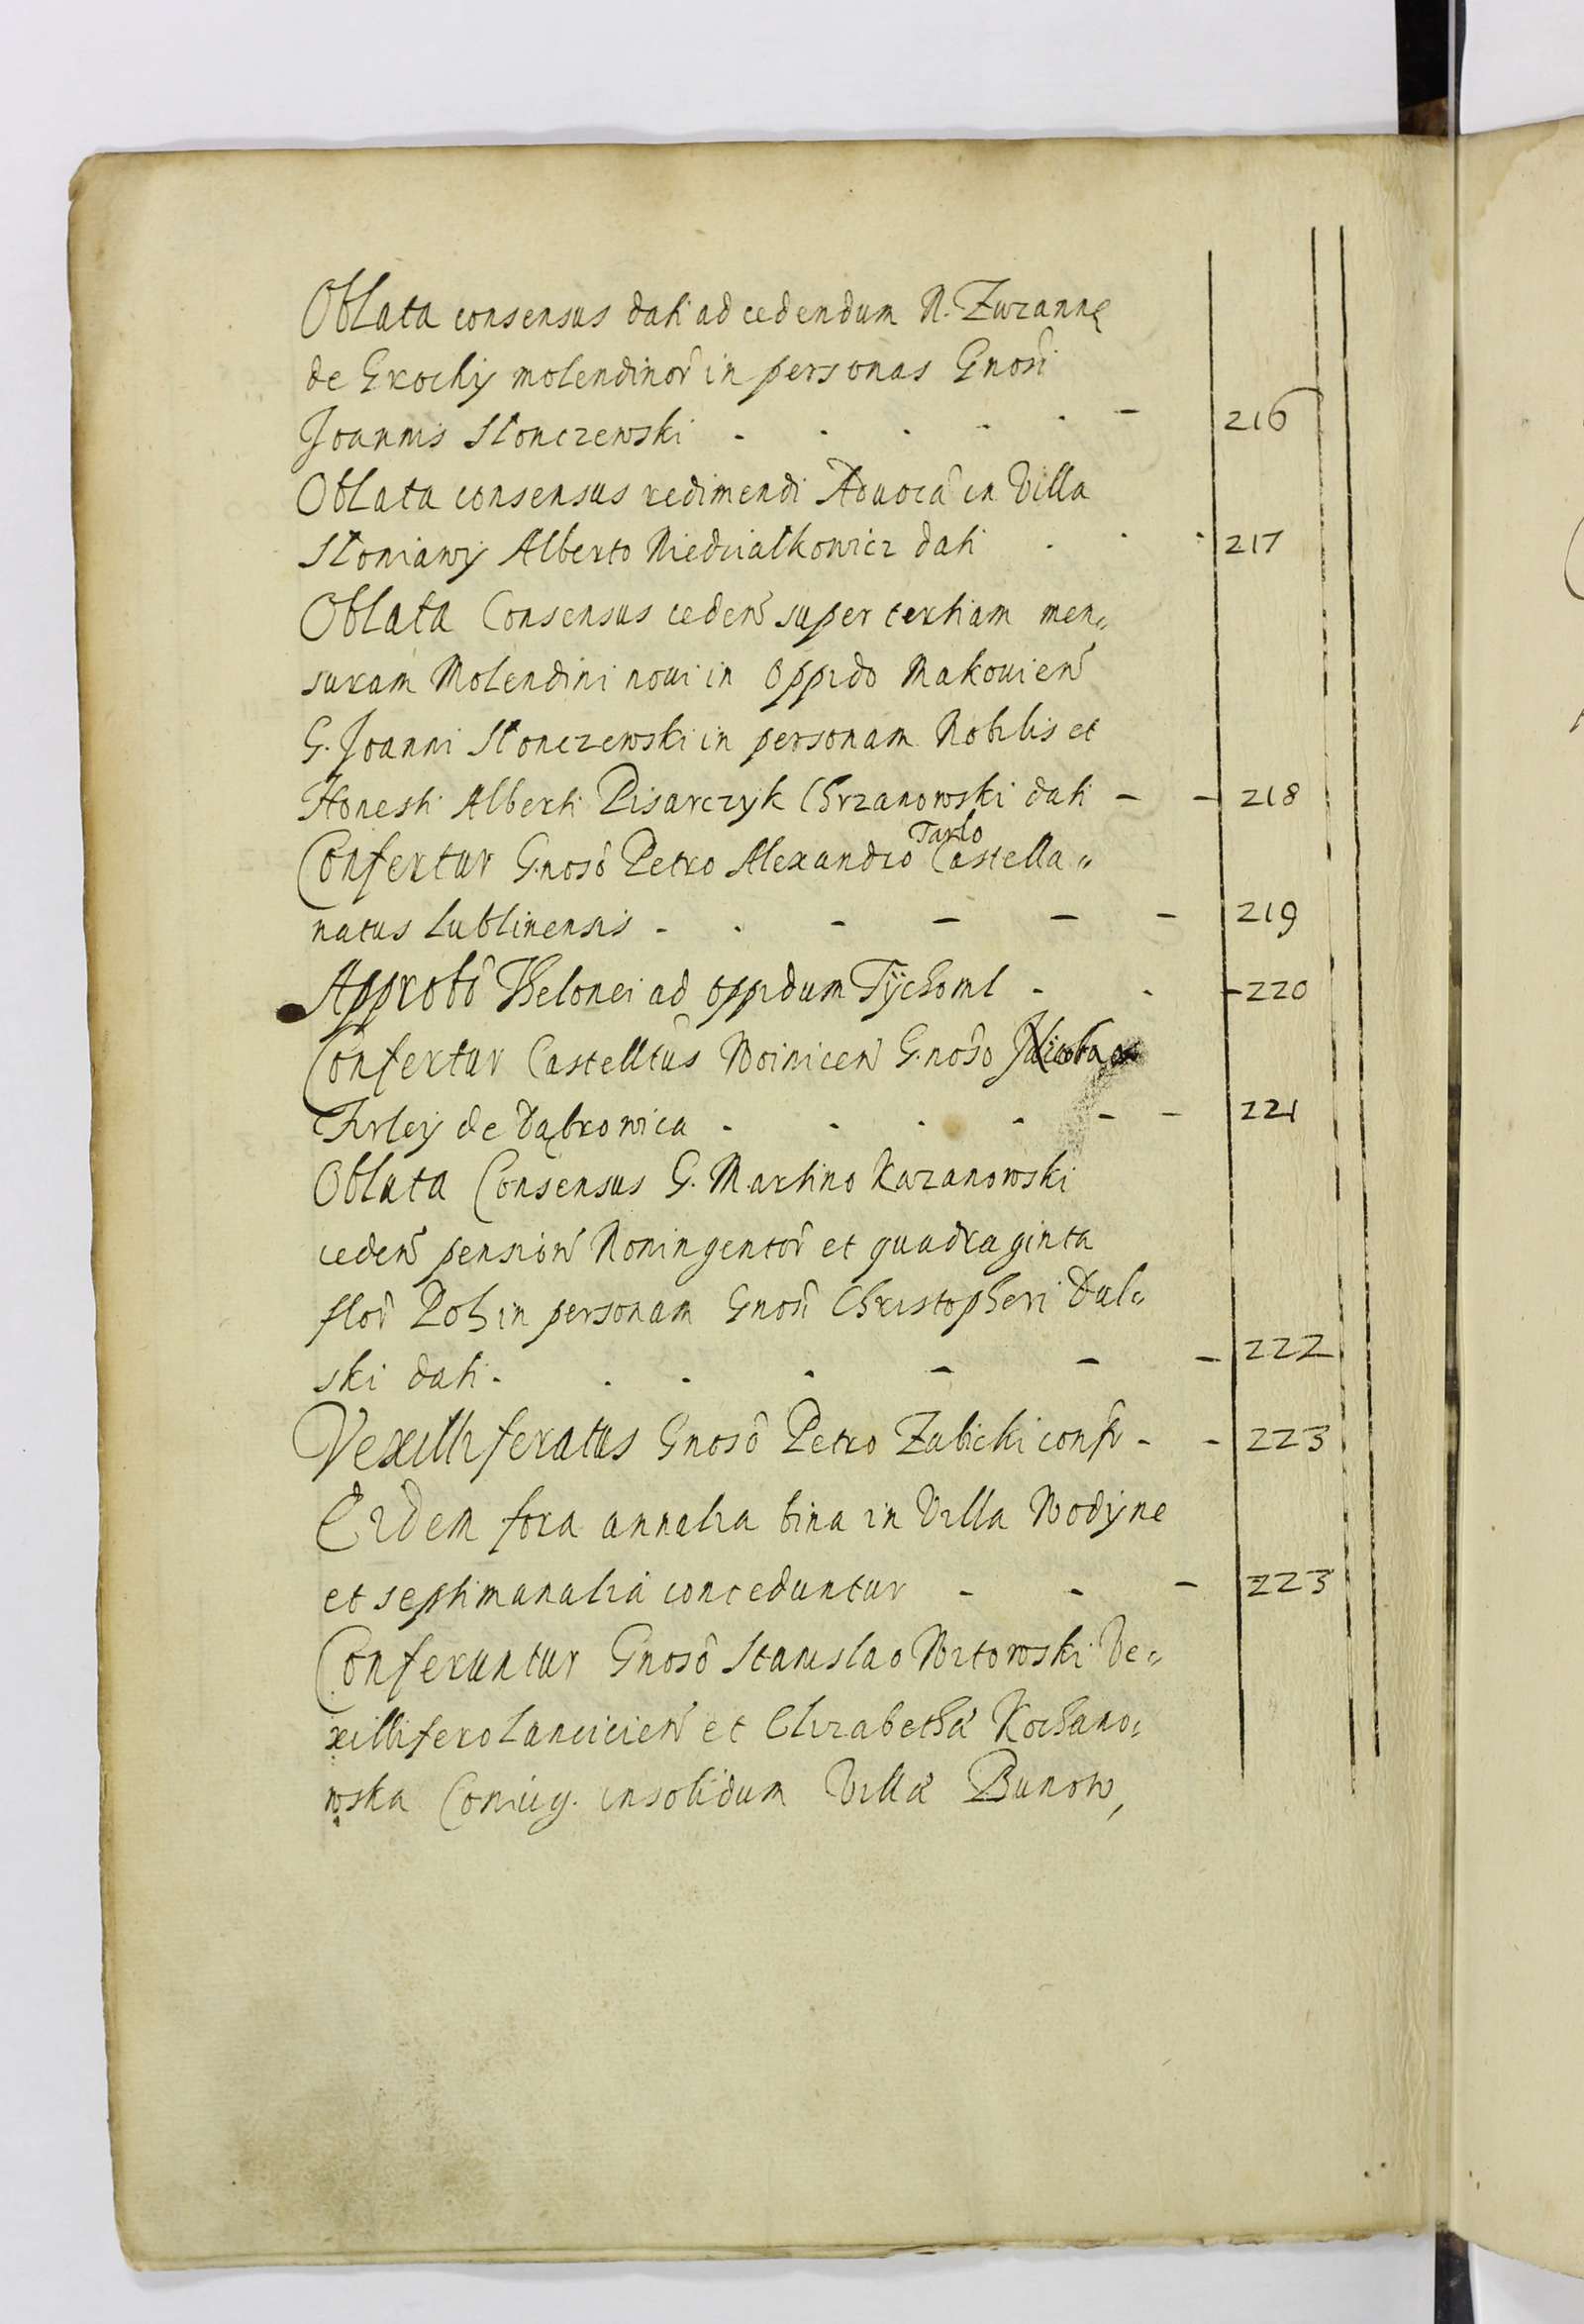 Oblata consensus dati ad cedendum N. Zuzannę
de Grochy molendinor̃ in personas Gnosi
Joannis Słonczewski - - - - - - 216
Oblata consensus redimendi Aduocã in Villa
Słoniawy Alberto Niedziałkowicz dati - - - 217
Oblata Consensus ceden̄ super tertiam men„
suram Molendini noui in Oppido Makouien̄
G. Joanni Słonczewski in personam Nobilis et
Honesti Alberti Pisarczyk Chrzanowski dati - - 218
Confertur G.nosõ Petro Alexandro Tarło Castella„
natus Lublinensis - - - - - - 219
Approbõ Thelonei ad oppidum Tÿchoml - - - 220
Confertur Castelltũs Woinicen̄ G.nosõ
Firley de Dąbrowica - - - - - - 221
Oblata Consensus G. Martino Kazanowski
ceden̄ pension̄ Noningentor̃ et quadraginta
flor̃ Pol in personam Gnosi Christopheri Dul„
ski dati - - - - - - - 222
Vexilliferatus Gnosõ Petro Zabicki confr̃ - - 223
Eidem fora annalia bina in Villa Wodÿne
et septimanalia conceduntur - - - 223
Conferuntur Gnosõ Stanislao Witowski Ve„
xillifero Lancicien̄ et Elizabethæ Kochano„
wska Coniug. insolidum Villæ Bunow,